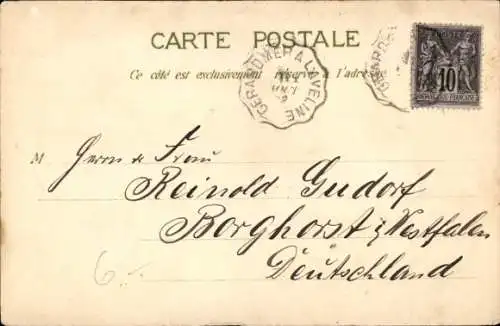 CARTE POSTALE
Ce côté est exclusivement réservé à l'adresse
GERARDMER A LAVELINE
GERARD
POSTES
10
RÉPUBLIQUE FRANÇAISE
M Herrn & Frau
Reinold Gudorf
Borghorst i/Westfalen
Deutschland
6